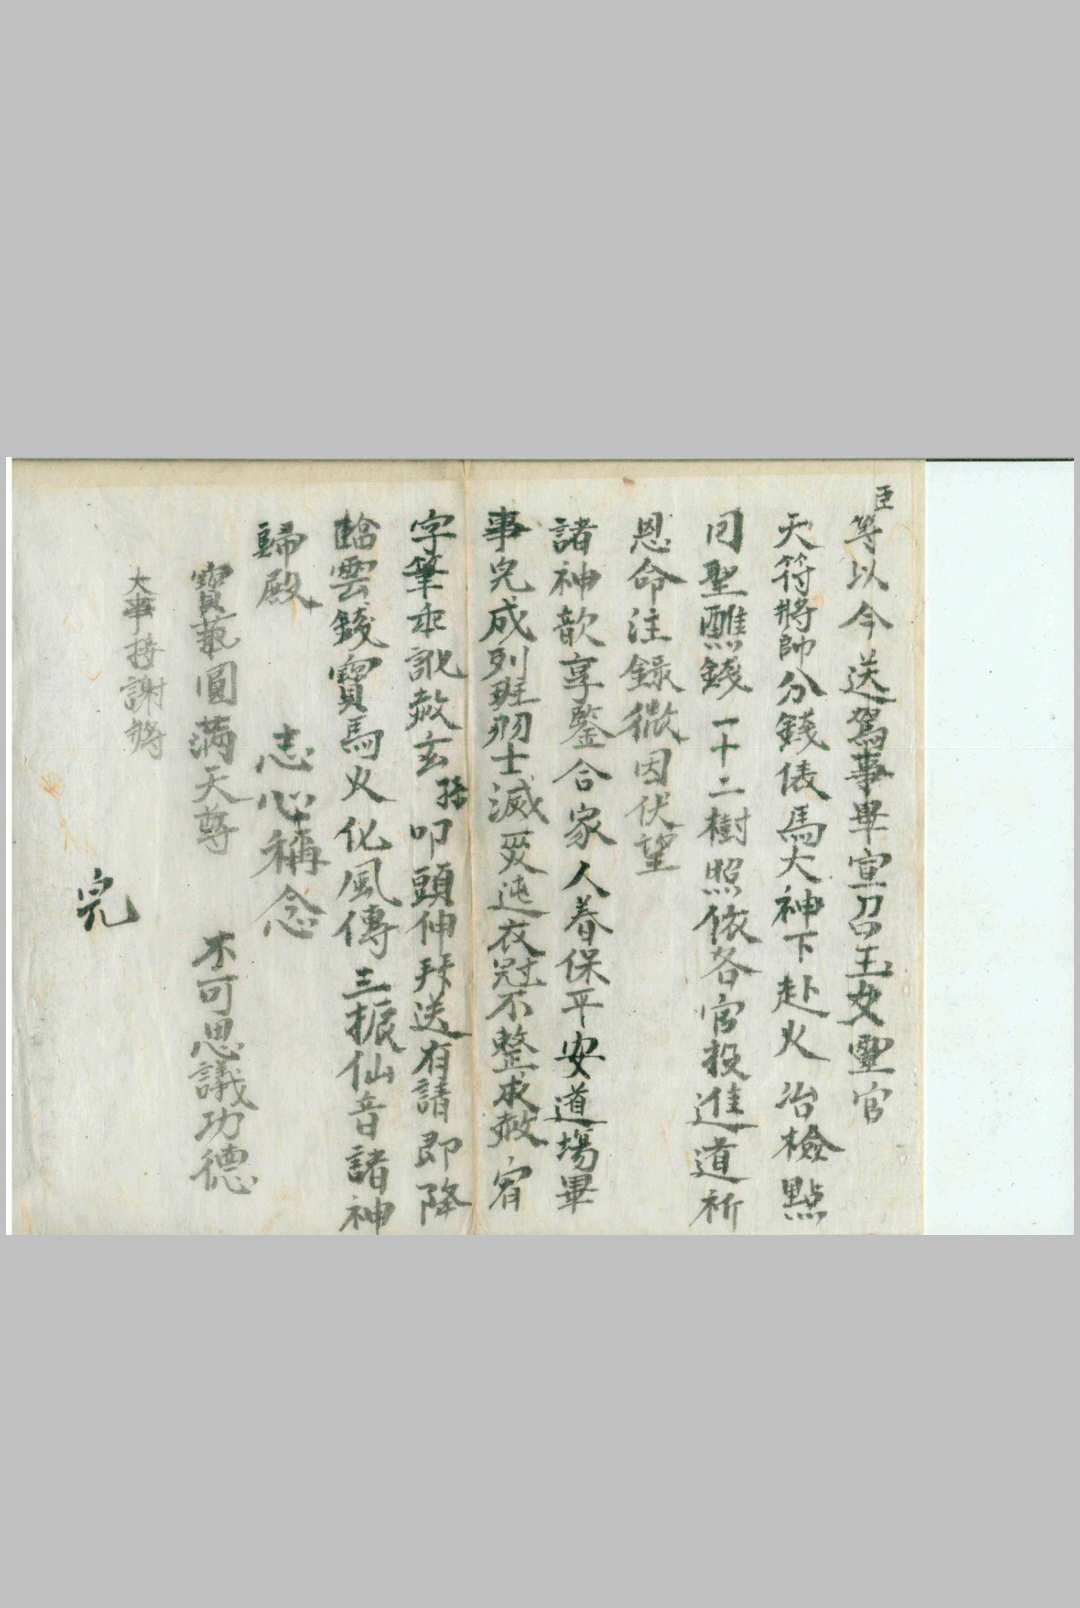 臣等以今送駕事畢宣召玉女靈官
天符將帥分錢俵馬大神下赴火冶檢點
同聖醮錢一十二樹照依各官投進道祈
恩命注錄微因伏望
諸神歆享鑒合家人眷保平安道場畢
事完成列班弱士滅災衣冠不整求赦宥
字筆赦玄孫叩頭伸拜送有請即降
雲錢寶馬火化風傳三振仙音諸神
歸殿 志心稱念
寶圓滿天尊 不可思議功德
大事持謝將
完